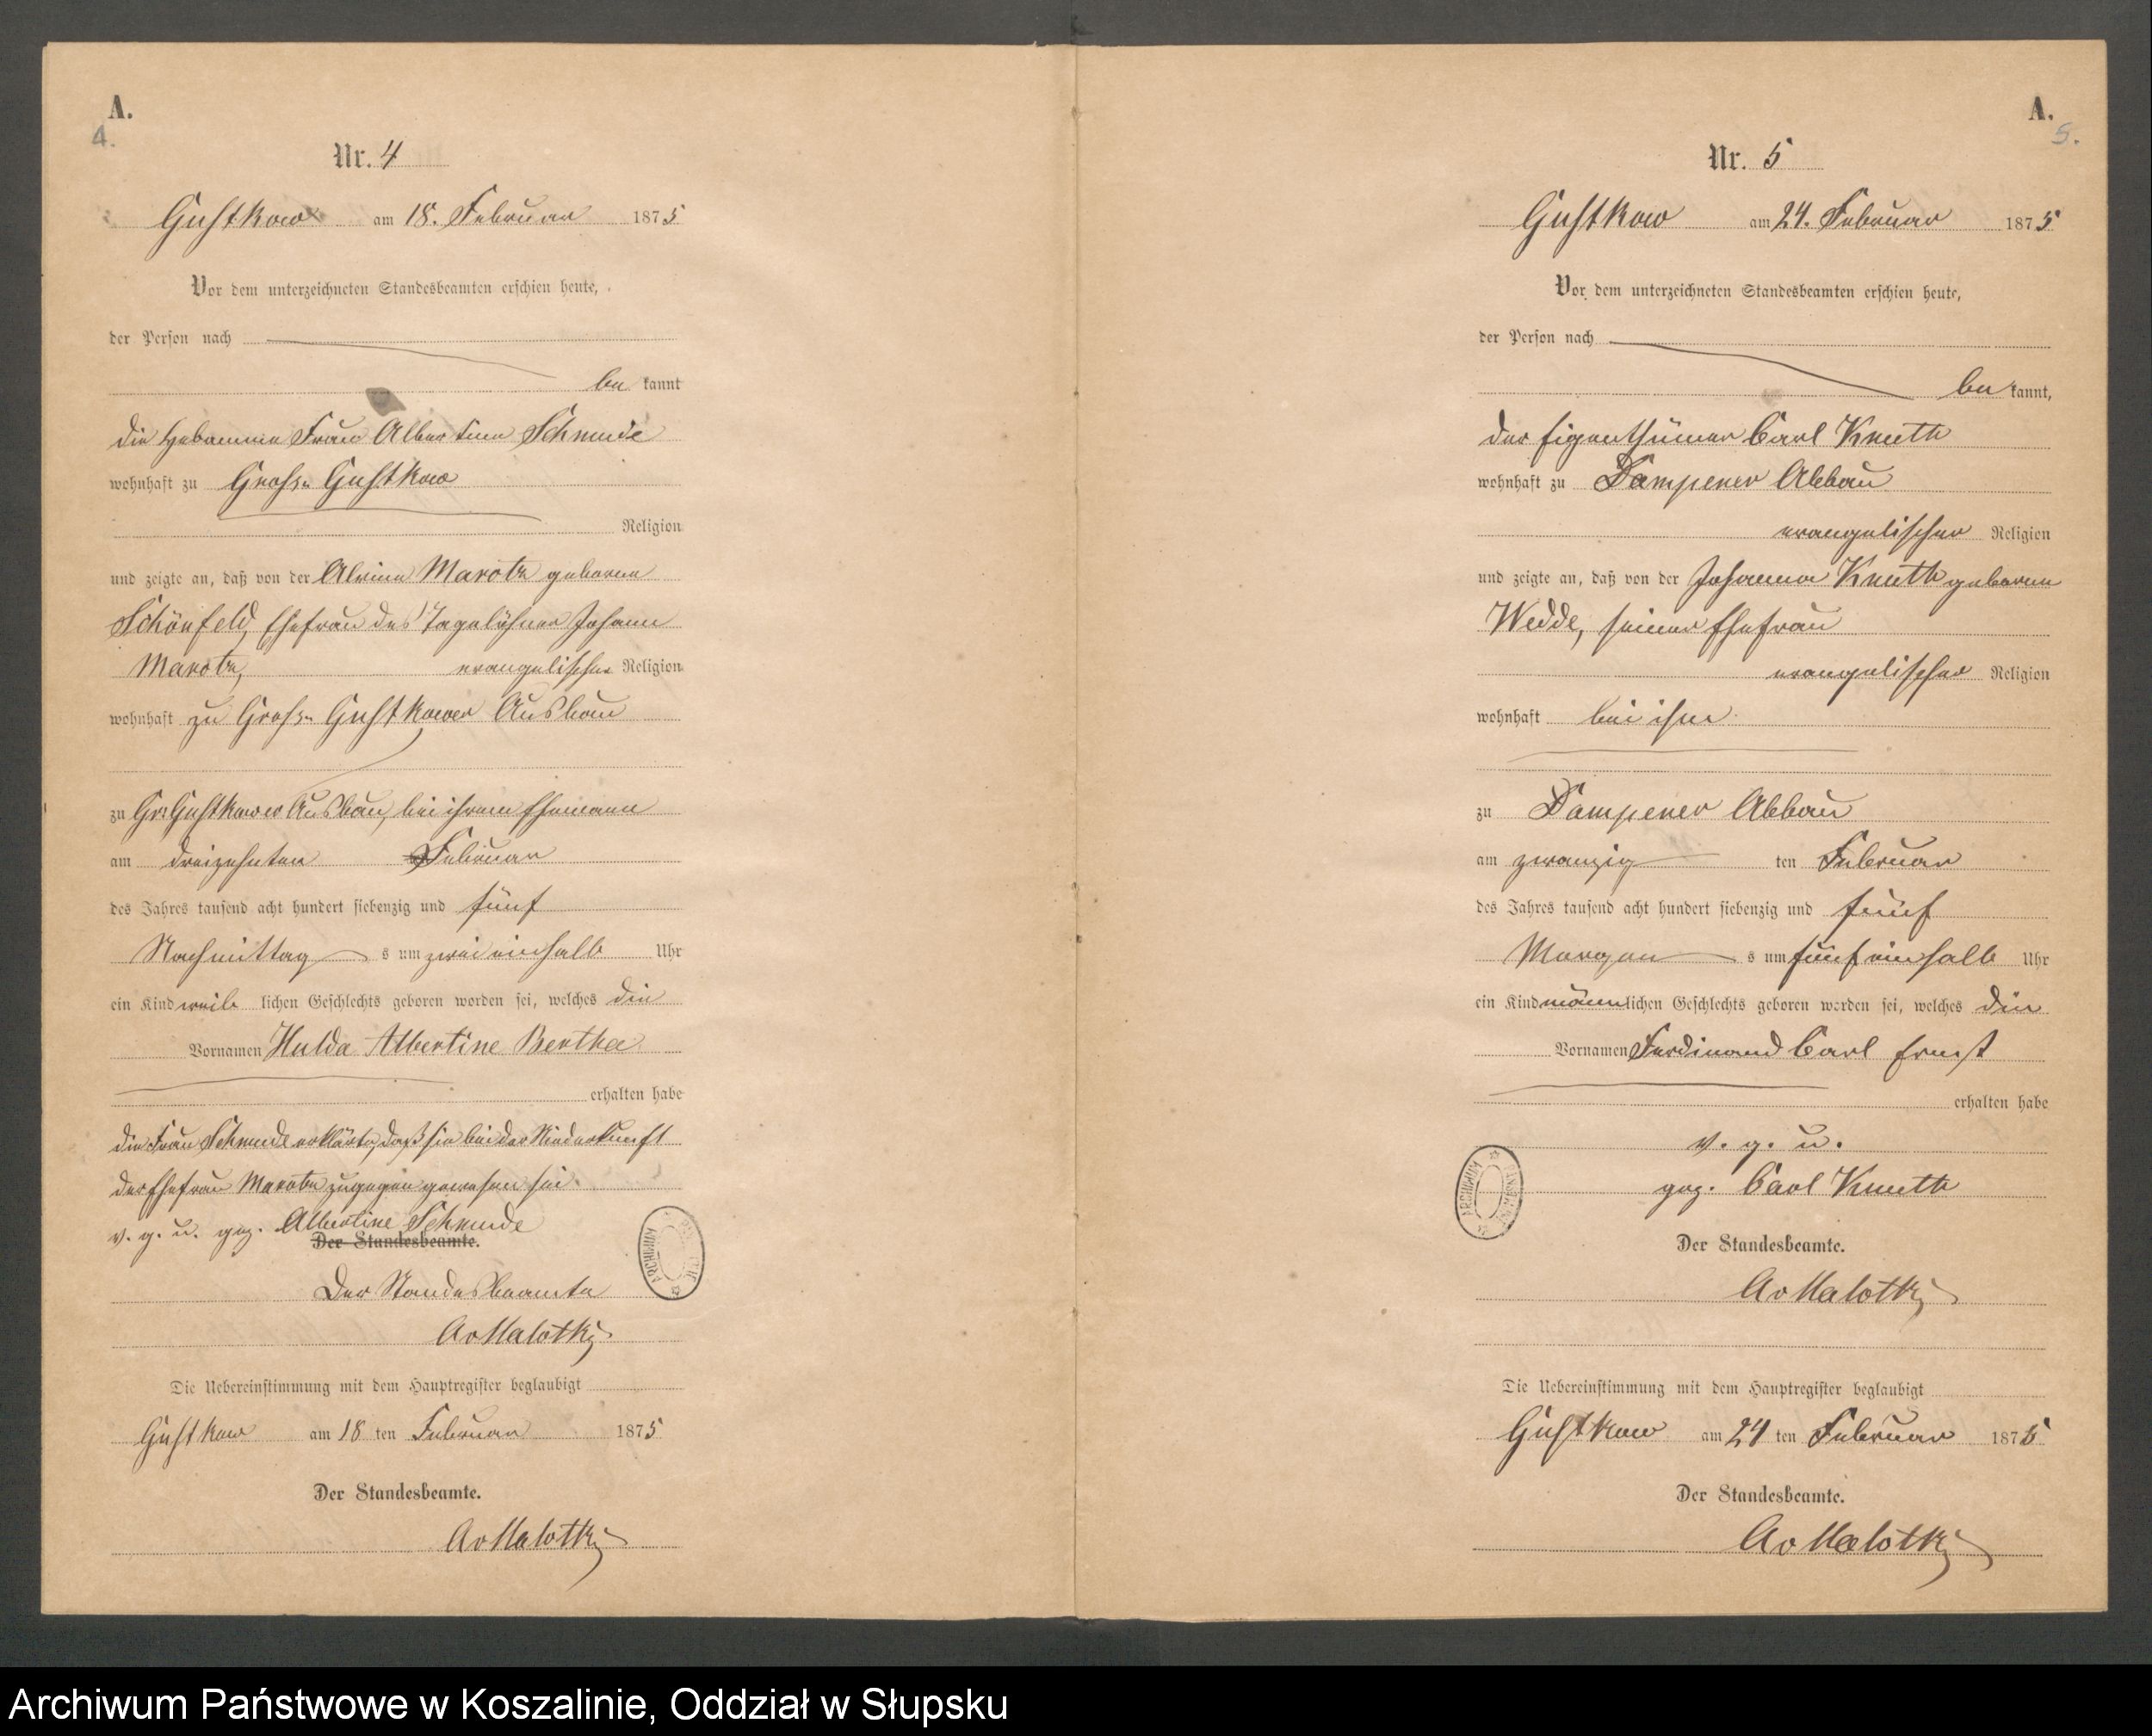 A.
4.
Nr. 4
Gustkow am 18. Februar 1875
Vor dem unterzeichneten Standesbeamten erschien heute,
der Person nach
be kannt
die Hebamme Frau Albertine Schmude
wohnhaft zu Gross-Gustkow
Religion
und zeigte an, daß von der Alvine Marotz geborene
Schönfeld, Ehefrau des Tagelöhner Johann
Marotz, evangelischer Religion
wohnhaft zu Gross-Gustkower Ausbau
zu Gr: Gustkower Ausbau, bei ihrem Ehemann
am dreizehnten Februar
des Jahres tausend acht hundert siebenzig und fünf
Nachmittag s um zwei einhalb Uhr
ein Kind weib lichen Geschlechts geboren worden sei, welches die
Vornamen Hulda Albertine Bertha
erhalten habe
die Frau Schmude erklärte, daß sie bei der Niederkunft
der Ehefrau Marotz zugegen gewesen sei.
v. g. u. gez. Albertine Schmude
Der Standesbeamte.
Der Standesbeamte
AvMalottki
Die Uebereinstimmung mit dem Hauptregister beglaubigt
Gustkow am 18 ten Februar 1875
Der Standesbeamte.
AvMalottki
ARCHIWUM
A.
5.
Nr. 5
Gustkow am 24. Februar 1875
Vor dem unterzeichneten Standesbeamten erschien heute,
der Person nach
be kannt,
der Eigenthümer Carl Knuth
wohnhaft zu Dampener Abbau
evangelischer Religion
und zeigte an, daß von der Johanna Knuth geborene
Wedde, seiner Ehefrau
evangelischer Religion
wohnhaft bei ihm
zu Dampener Abbau
am zwanzig ten Februar
des Jahres tausend acht hundert siebenzig und fünf
Morgen s um fünf einhalb Uhr
ein Kind männlichen Geschlechts geboren worden sei, welches die
Vornamen Ferdinand Carl Ernst
erhalten habe
v. g. u.
gez. Carl Knuth
Der Standesbeamte.
AvMalottki
Die Uebereinstimmung mit dem Hauptregister beglaubigt
Gustkow am 24 ten Februar 1875
Der Standesbeamte.
AvMalottki
ARCHIWUM
Archiwum Państwowe w Koszalinie, Oddział w Słupsku